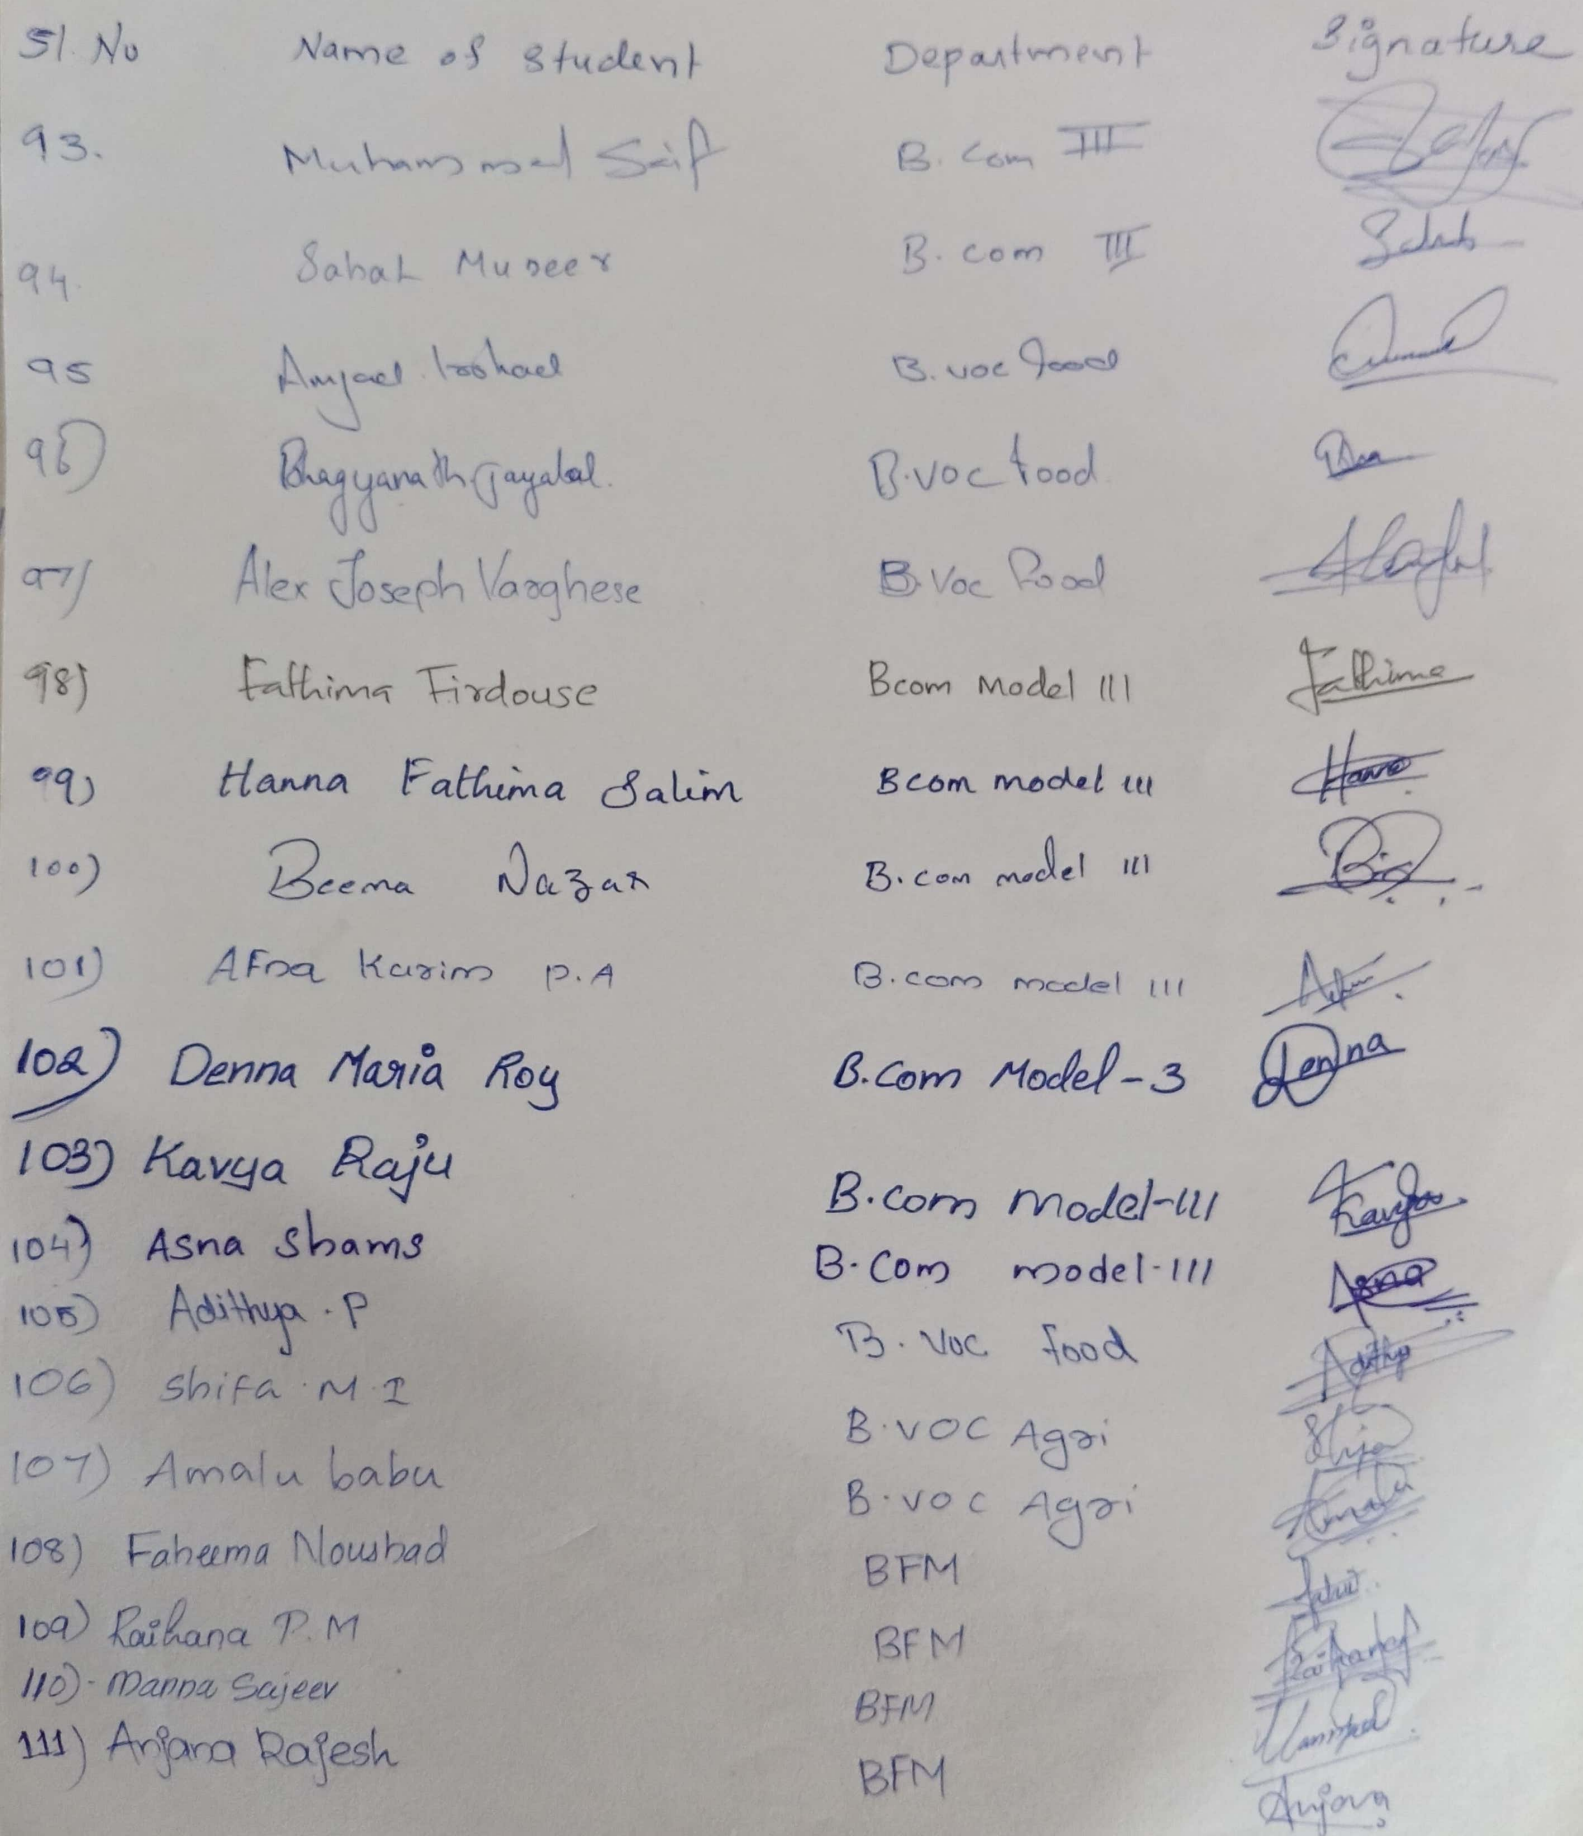 Sl. No Name of Student Department Signature
93. Muhammed Saif B. Com III
94. Sabah Muneer B. com III
95 Amjad Irshad B. voc food
96) Bhagyanath Jayalal. B.voc food
97) Alex Joseph Varghese B.Voc Food
98) Fathima Firdouse Bcom Model III Fathima
99) Hanna Fathima Salim Bcom model III Hanna
100) Beema Nazar B.com model III
101) Afna Karim P.A B.com model III
102) Denna Maria Roy B.Com Model-3 Denna
103) Kavya Raju B.com Model-III Kavya
104) Asna Shams B.Com model-III Asna
105) Adithya.P B.Voc food Adithya
106) Shifa.M.I B.VOC Agri
107) Amalu babu B.VOC Agri Amalu
108) Faheema Noushad BFM
109) Raihana P.M BFM
110)- Manna Sajeev BFM
111) Anjana Rajesh BFM Anjana